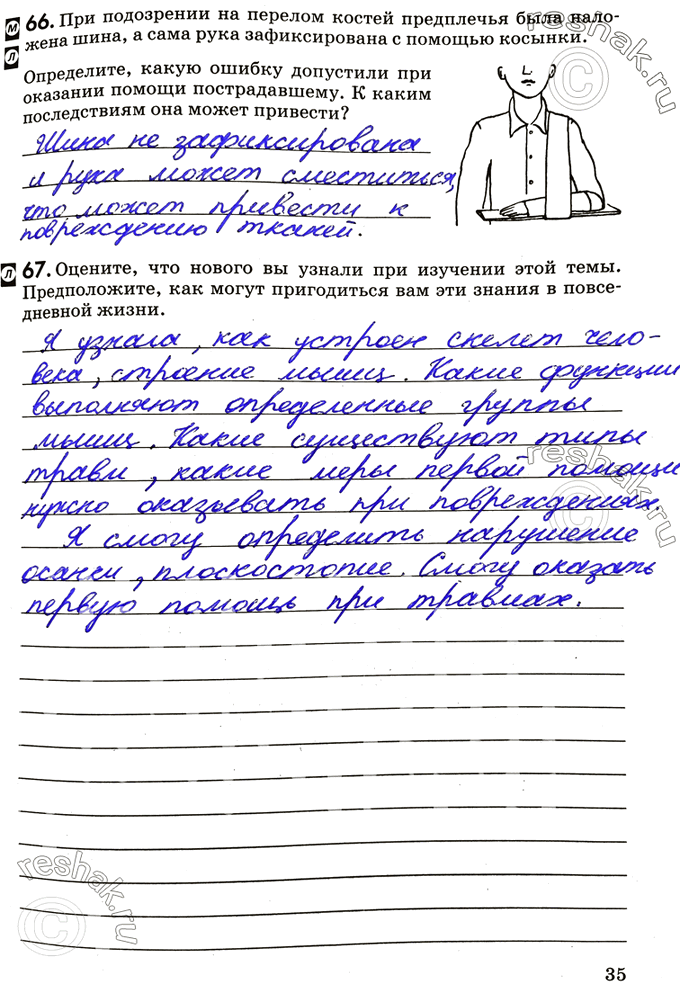 м 66. При подозрении на перелом костей предплечья была нало-
л жена шина, а сама рука зафиксирована с помощью косынки.
Определите, какую ошибку допустили при
оказании помощи пострадавшему. К каким
последствиям она может привести?
Шина не зафиксирована
и рука может сместиться,
что может привести к
повреждению тканей.
л 67. Оцените, что нового вы узнали при изучении этой темы.
Предположите, как могут пригодиться вам эти знания в повсе-
дневной жизни.
Я узнала, как устроен скелет чело-
века, строение мышц. Какие функции
выполняют определенные группы
мышц. Какие существуют типы
травм, какие меры первой помощи
нужно оказывать при повреждениях.
Я смогу определить нарушение
осанки, плоскостопие. Смогу оказать
первую помощь при травмах.
35
reshak.ru
reshak.ru
reshak.ru
reshak.ru